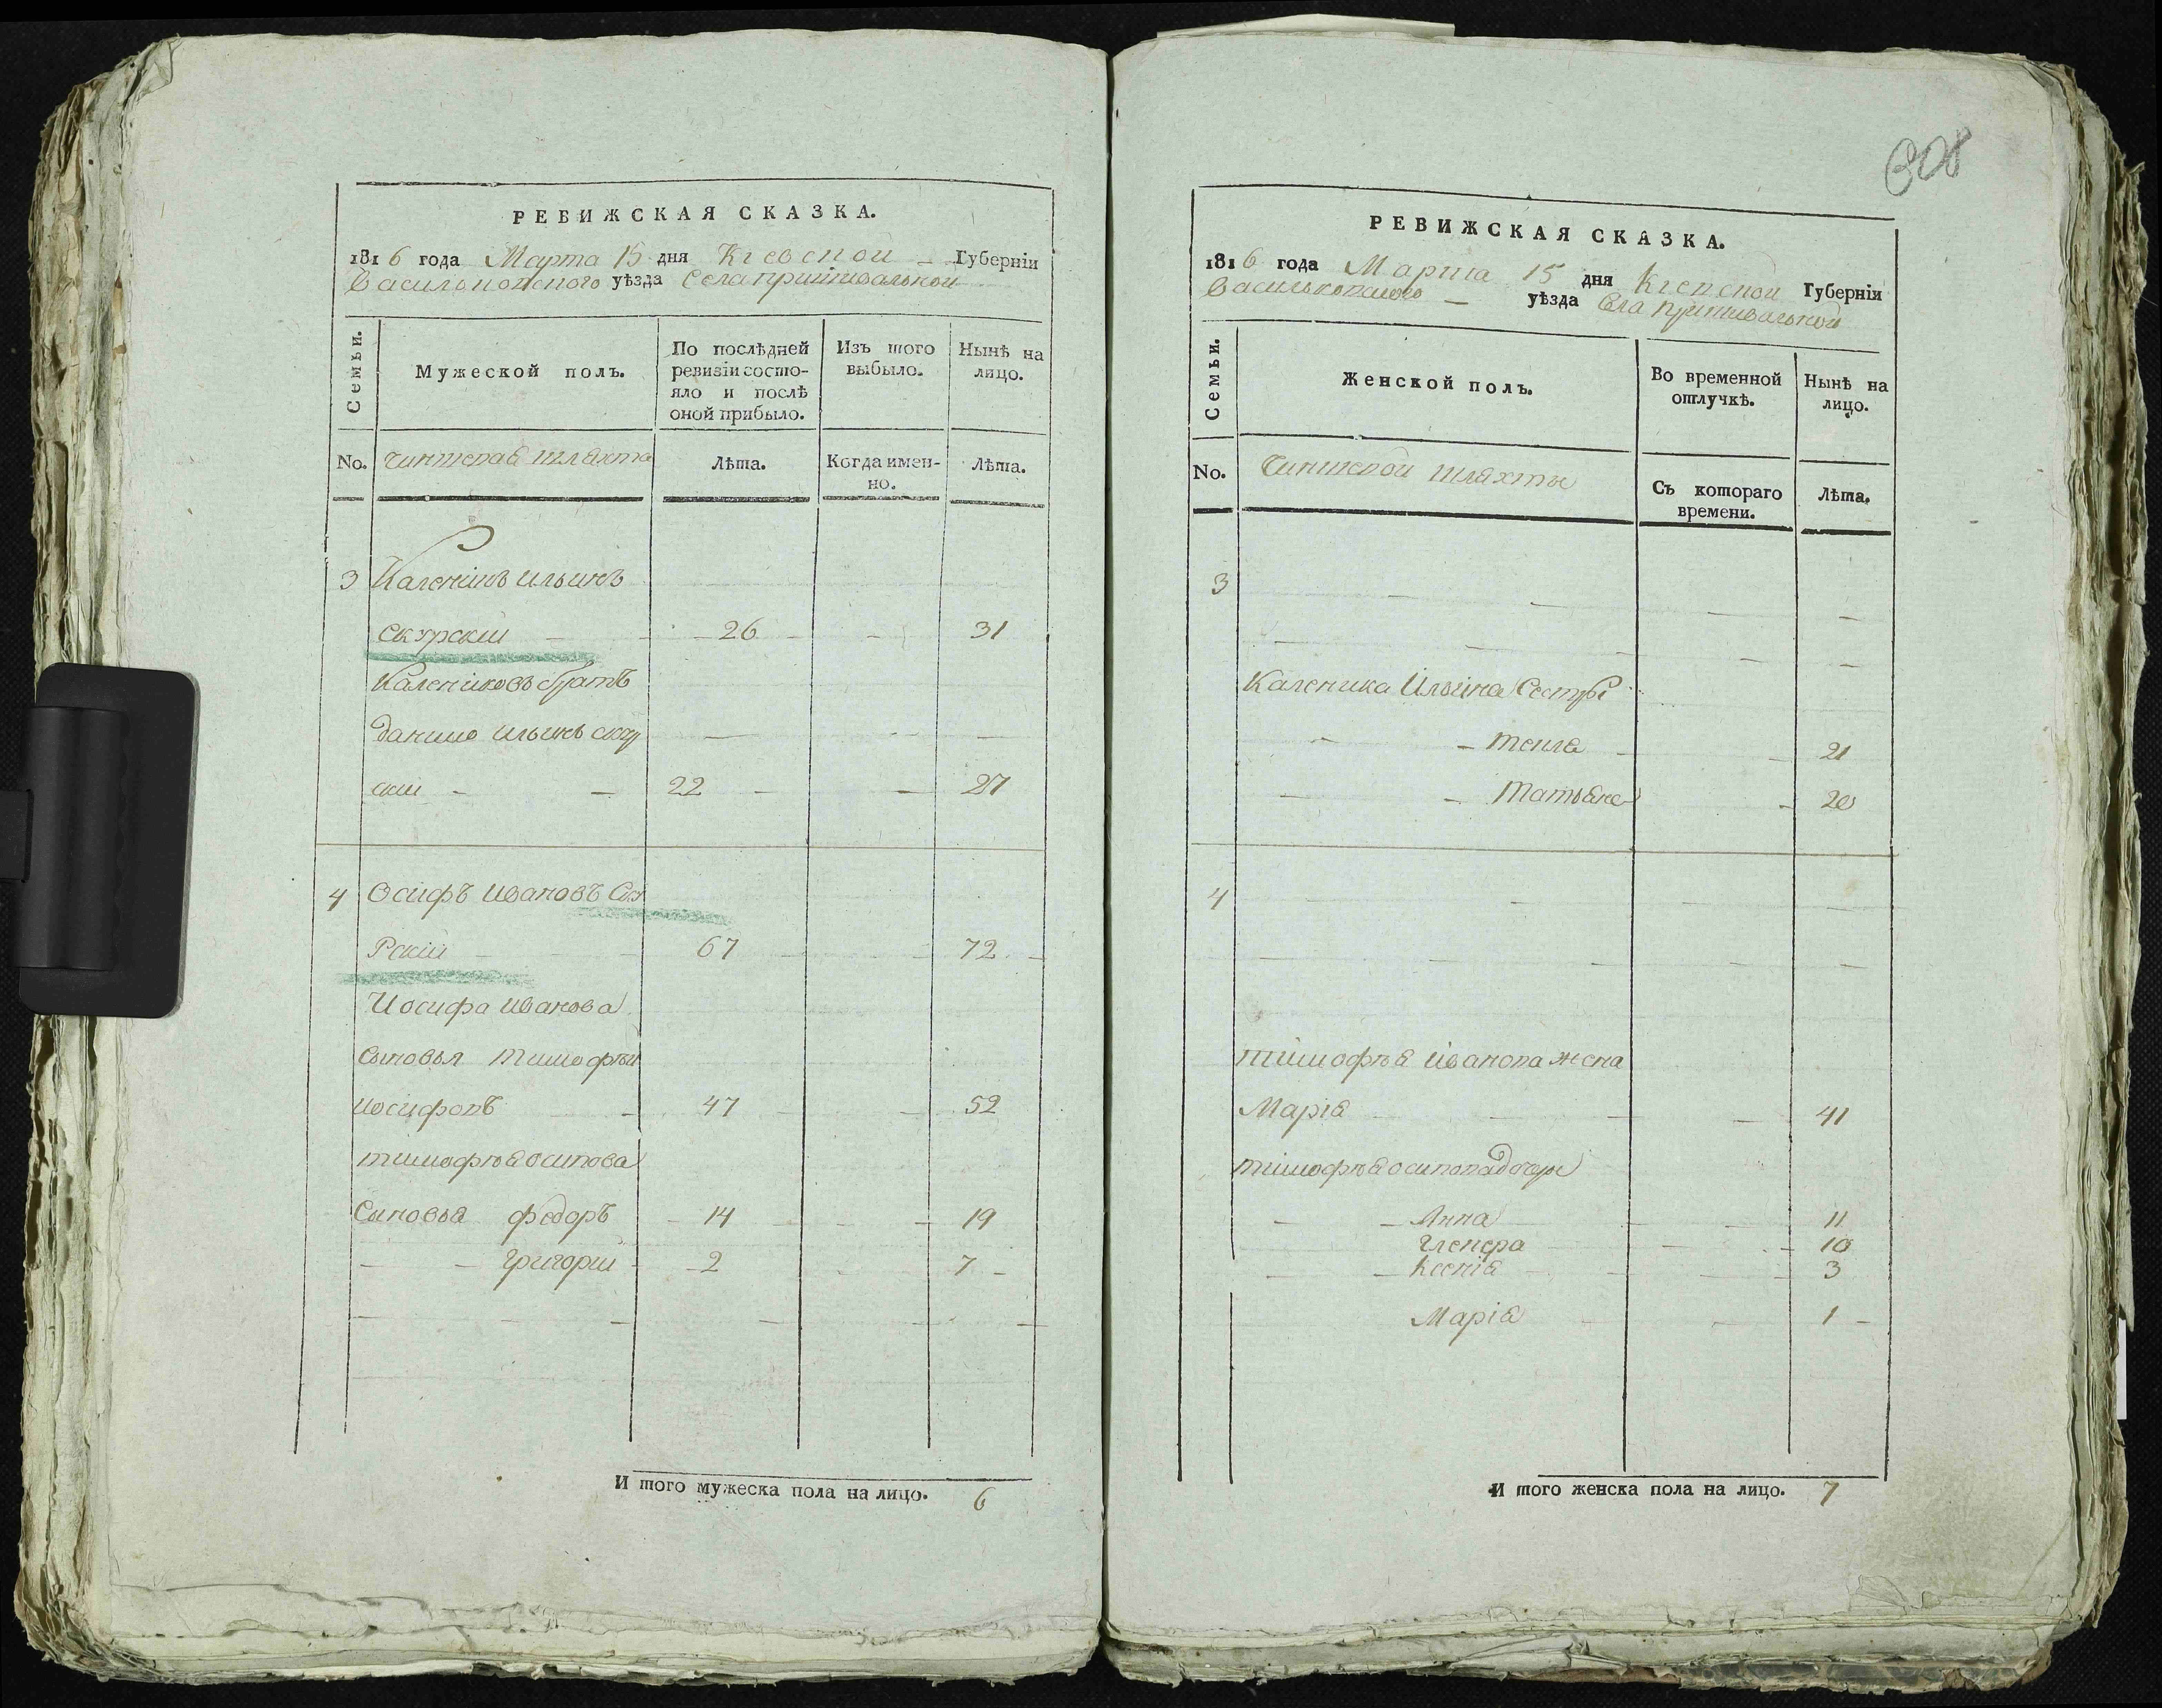 РЕВИЖСКАЯ СКАЗКА.
1816 года Марта 15 дня Киевской Губерніи
Васильковского уѣзда Села
Семьи.
Мужеской полъ.
По послѣдней ревизіи состояло и послѣ оной прибыло.
Изъ того выбыло.
Нынѣ на лицо.
No. Чиншевая шляхта
Лѣта.
Когда именно.
Лѣта.
3 Каленикъ Ильинъ
Скурскій 26 31
Калениковъ братъ
Данило Ильинъ Скур
скій 22 27
4 Осифъ Ивановъ Ску
Рскій 67 72
Иосифа Иванова
Сыновья Тимофѣй
Иосифовъ 47 52
Тимофѣя Осипова
Сыновья Федоръ 14 19
Григорій 2 7
И того мужеска пола на лицо. 6
308
РЕВИЖСКАЯ СКАЗКА.
1816 года Марта 15 дня Киевской Губерніи
Васильковского уѣзда Села
Семьи.
Женской полъ.
Во временной отлучкѣ.
Нынѣ на лицо.
No. Чиншевой шляхты
Съ котораго времени.
Лѣта.
3
Каленика Ильина Сестры
Текля 21
Татьяна 20
4
Тимофѣя Иванова жена
Марія 41
Тимофѣя Осипова дочери
Анна 11
10
Ксенія 3
Марія 1
И того женска пола на лицо. 7